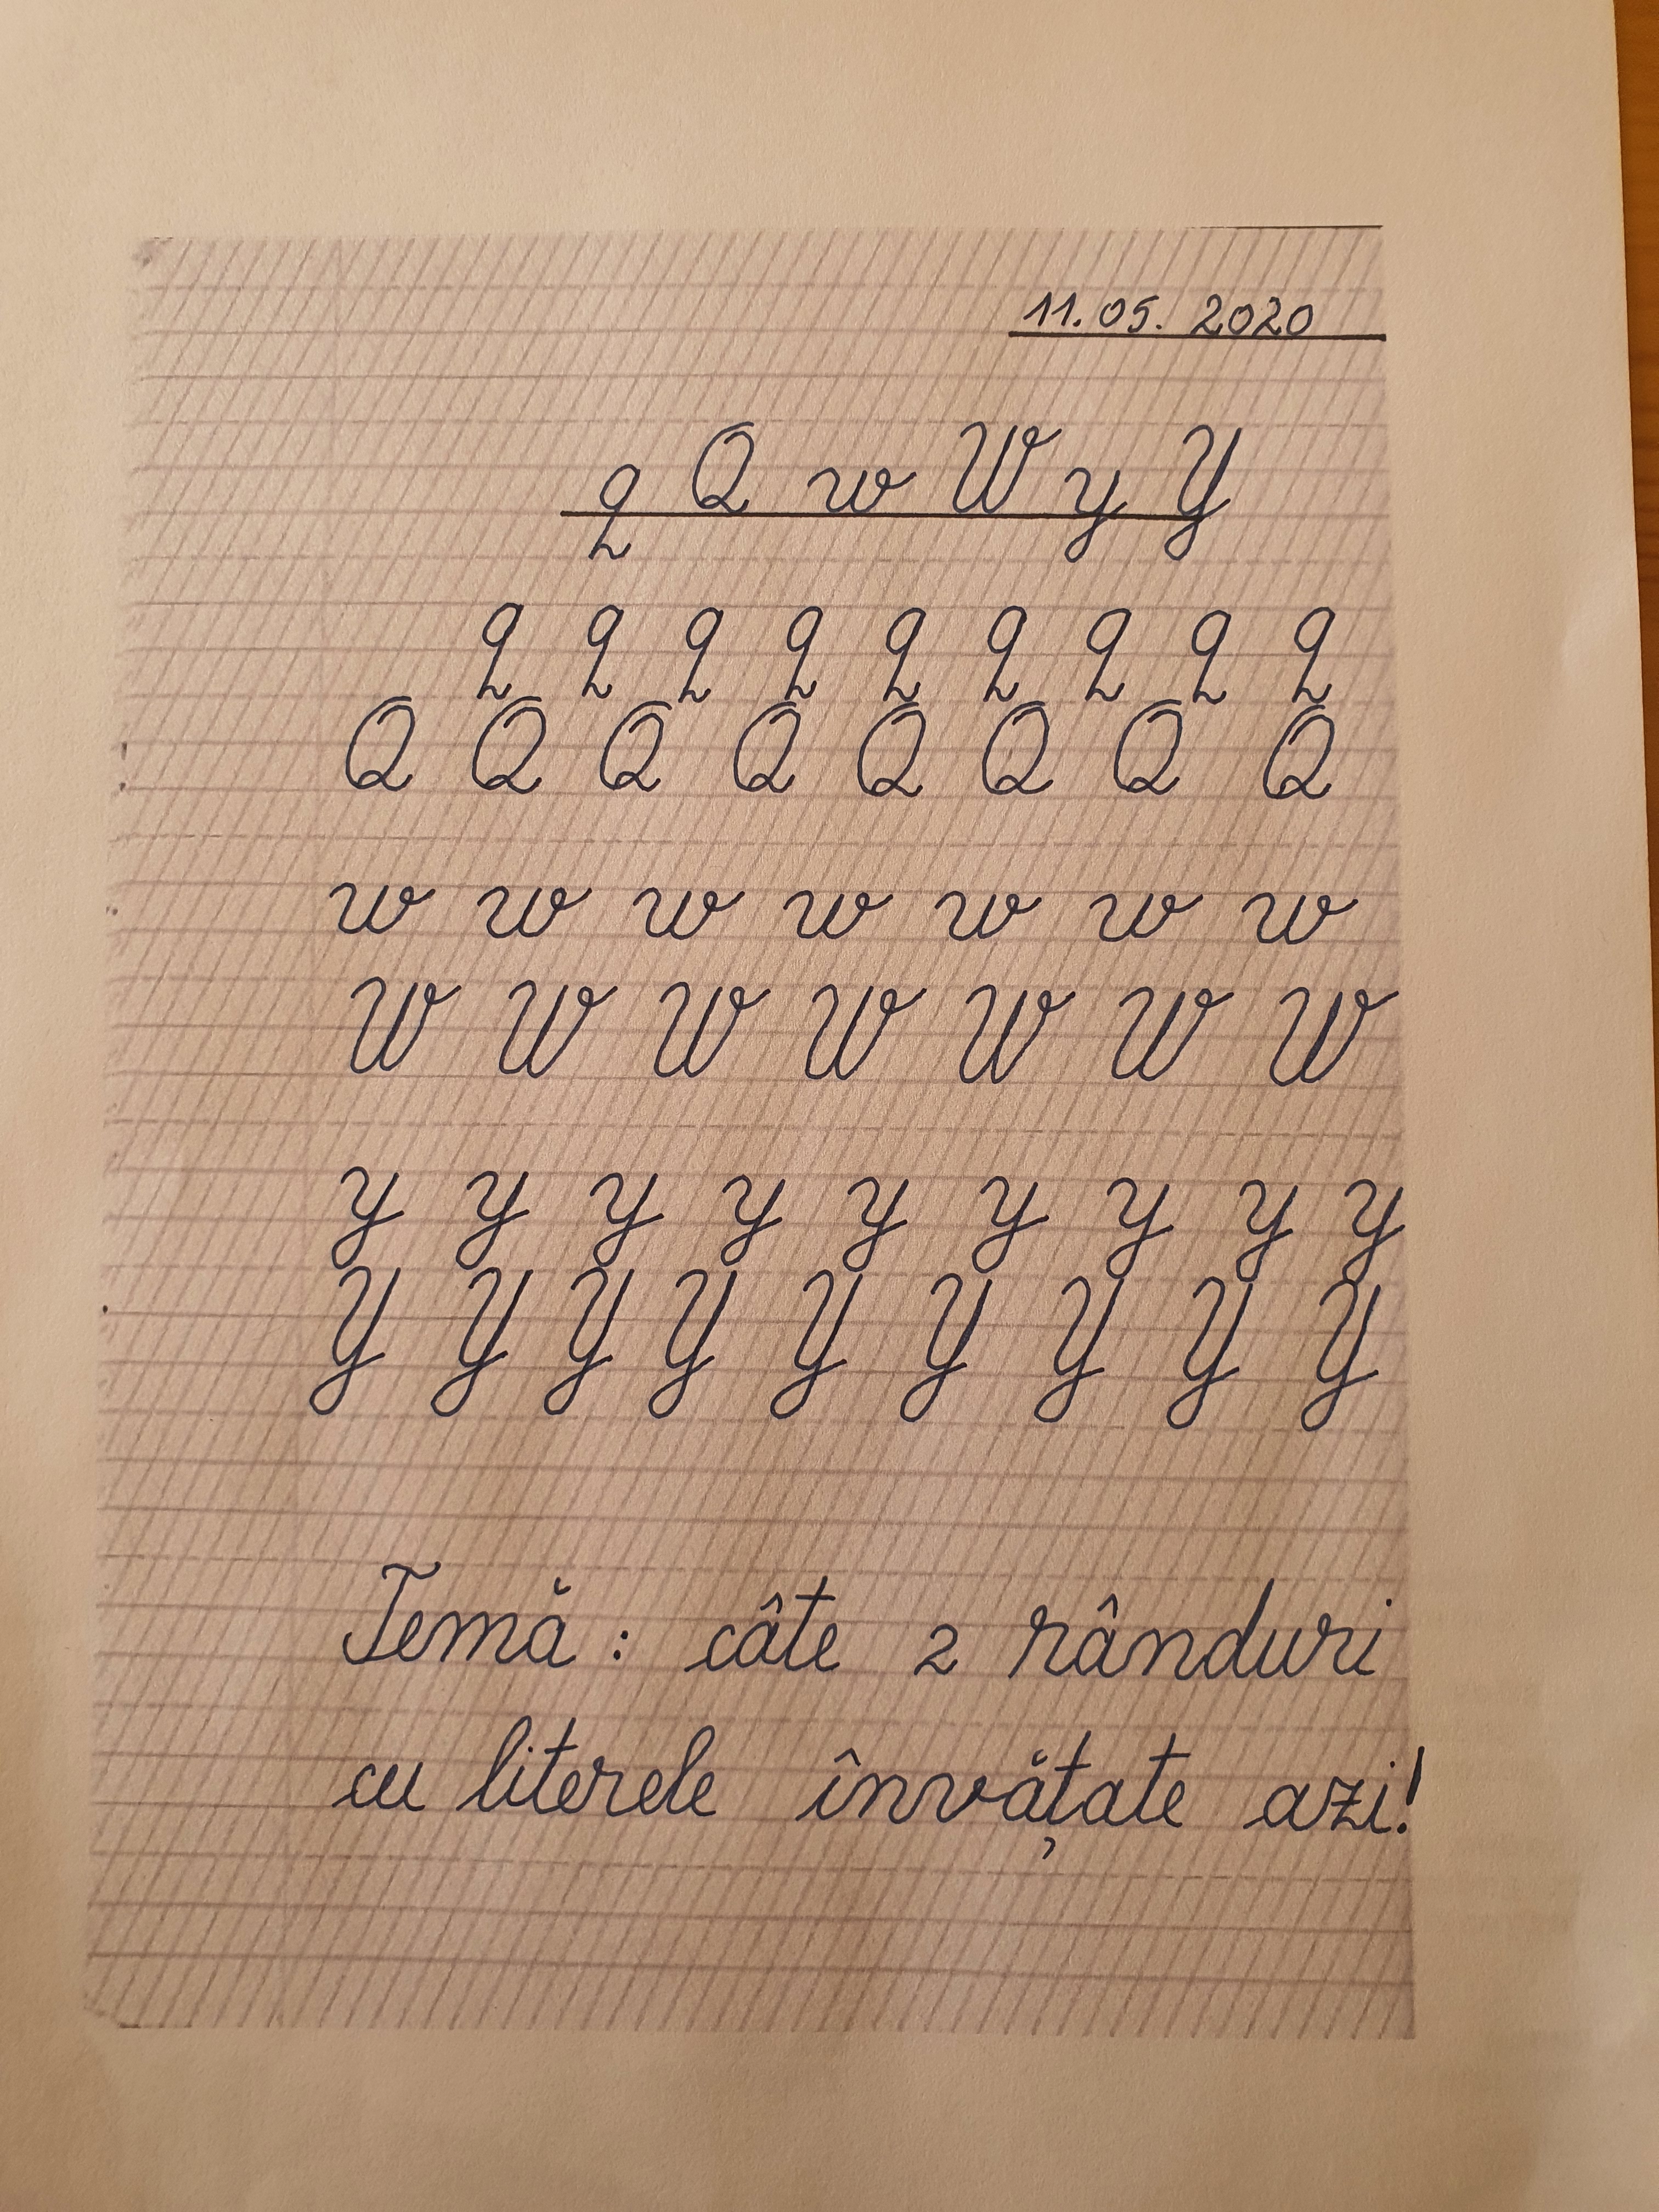 11.05.2020
q Q w W y Y
q q q q q q q q q
Q Q Q Q Q Q Q Q
w w w w w w w
W W W W W W W
y y y y y y y y y
Y Y Y Y Y Y Y Y Y
Temă: câte 2 rânduri
cu literele învățate azi!